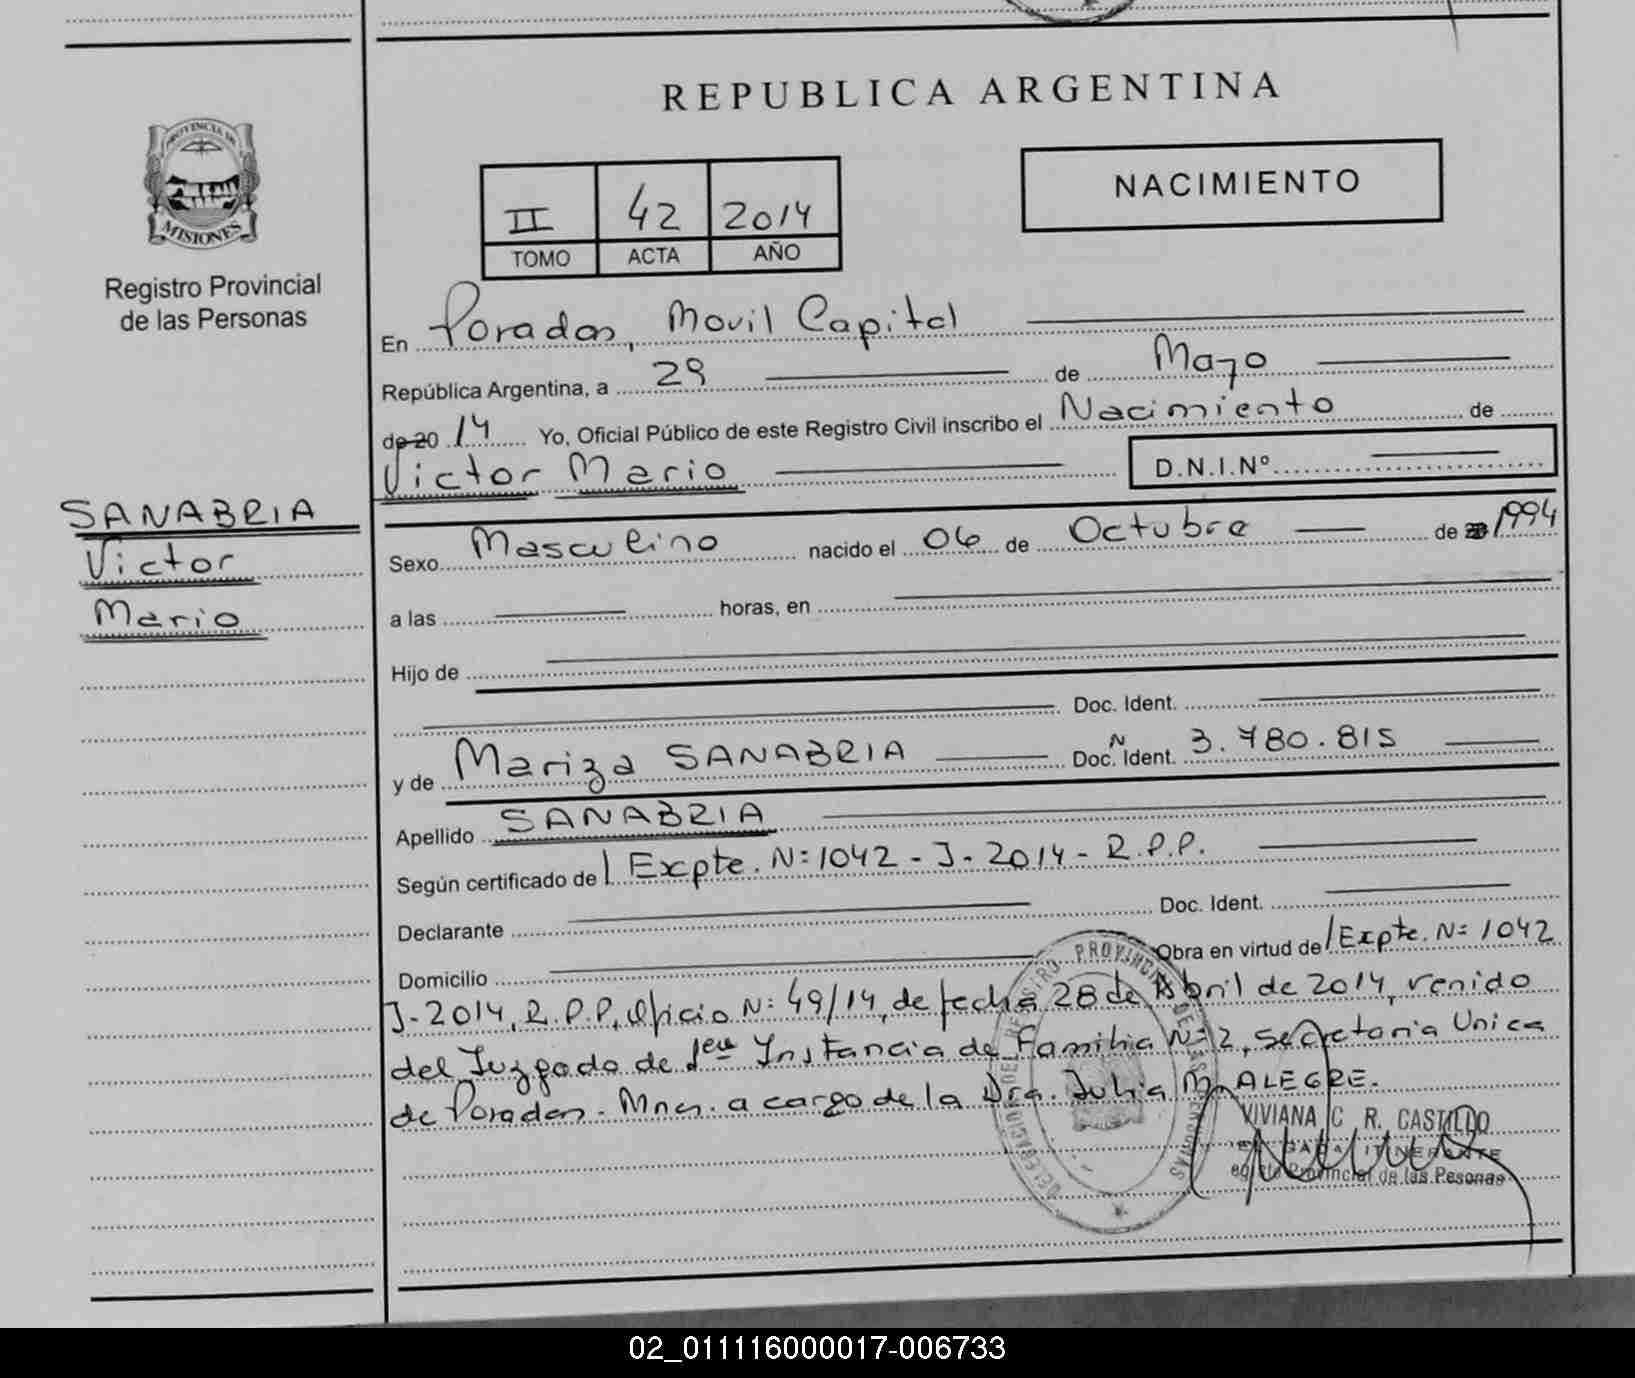 REPUBLICA ARGENTINA
PROVINCIA DE
MISIONES
Registro Provincial
de las Personas
II 42 2014
TOMO ACTA AÑO
NACIMIENTO
En Posadas, Movil Capital
República Argentina, a 29 de Mayo
de 20 14 Yo, Oficial Público de este Registro Civil inscribo el Nacimiento de
Victor Mario D.N.I.Nº
SANABRIA
Victor
Mario
Sexo Masculino nacido el 06 de Octubre de 1994
a las horas, en
Hijo de
Doc. Ident.
y de Mariza SANABRIA Doc. N Ident. 3.780.815
Apellido SANABRIA
Según certificado de Expte. Nº 1042 - J - 2014 - R.P.P.
Declarante Doc. Ident.
Domicilio Obra en virtud de Expte. Nº 1042
J-2014, R.P.P, Oficio Nº 49/14, de fecha 28 de Abril de 2014, venido
del Juzgado de 1era Instancia de Familia Nº 2, secretaria Unica
de Posadas - Mnes. a cargo de la Dra. Julia M. ALEGRE.
VIVIANA C R. CASTILLO
ITINERANTE
Provincial de las Pesonas
DELEGACION DE REGISTRO PROVINCIAL DE LAS PERSONAS
02_011116000017-006733